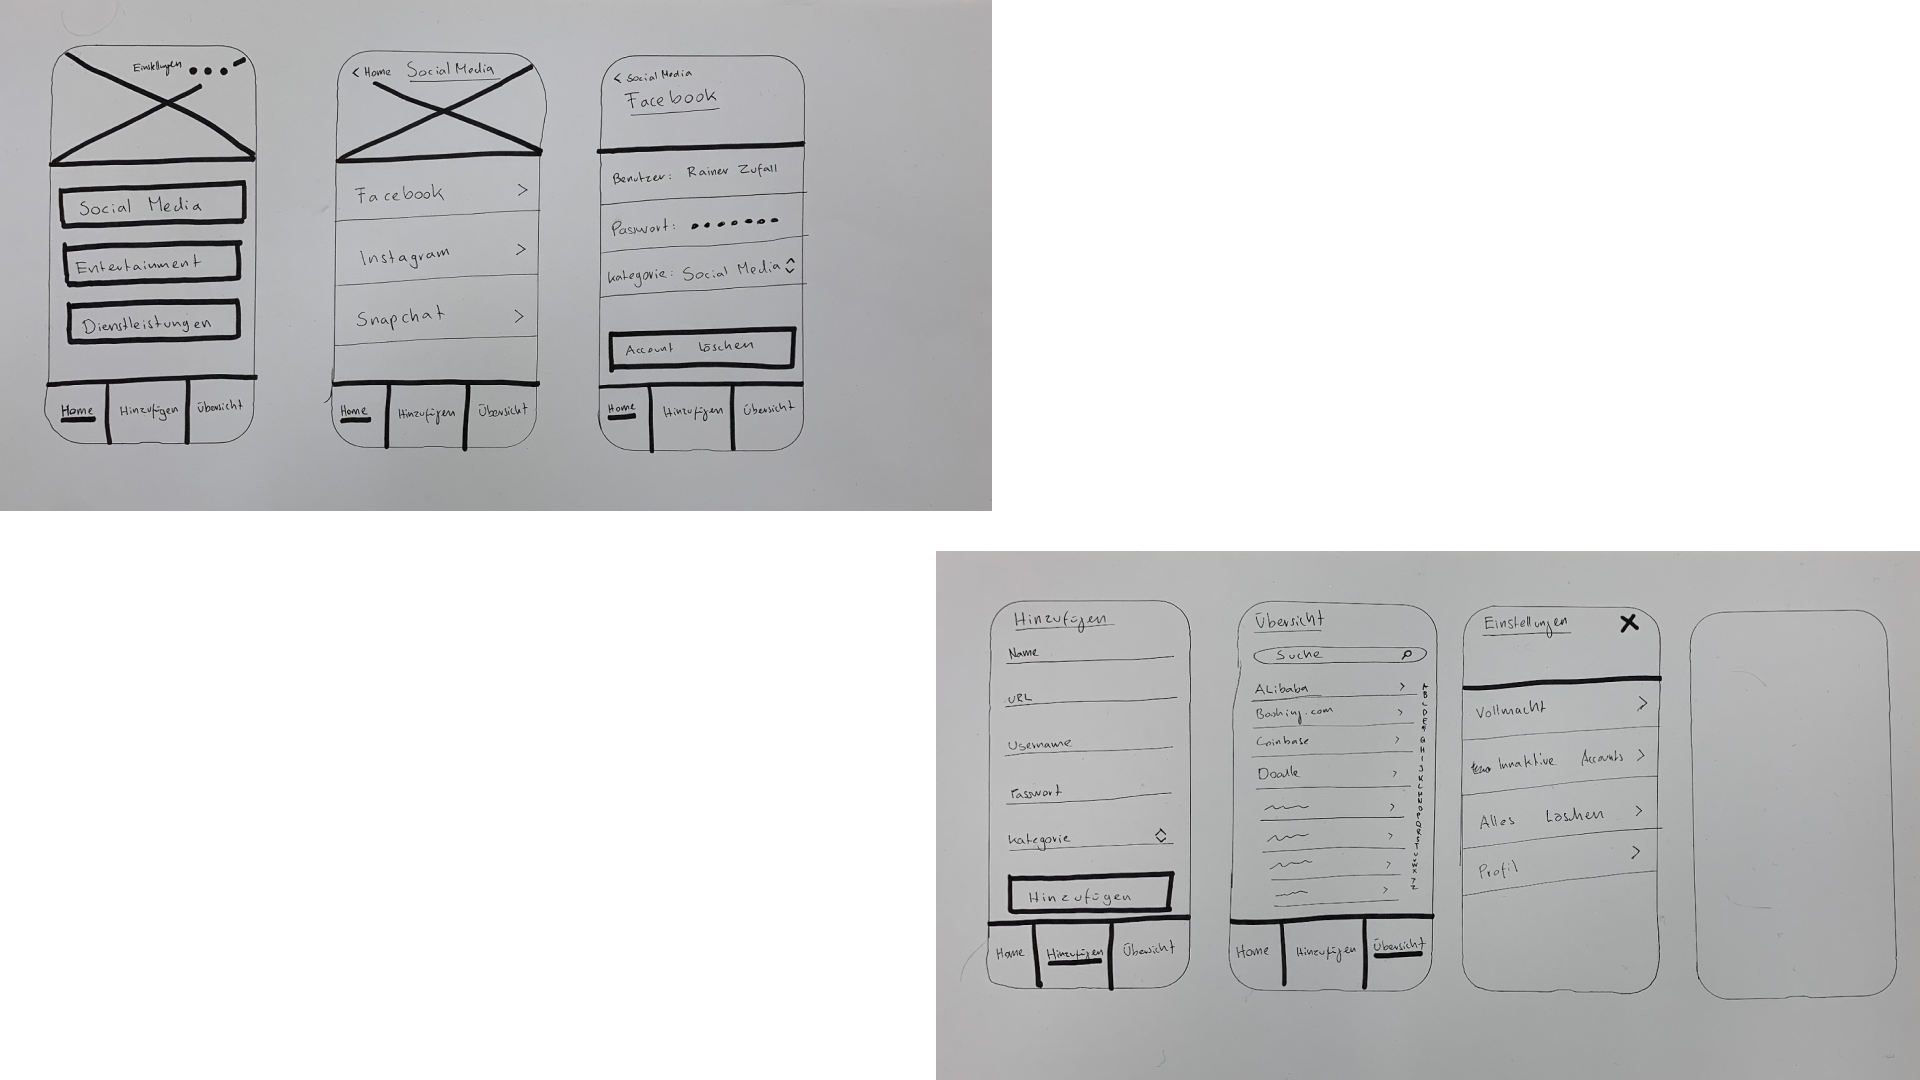 Einstellungen
Social Media
Entertainment
Dienstleistungen
Home Hinzufügen Übersicht
< Home Social Media
Facebook >
Instagram >
Snapchat >
Home Hinzufügen Übersicht
< Social Media
Facebook
Benutzer: Rainer Zufall
Passwort: •••••••
Kategorie: Social Media
Account Löschen
Home Hinzufügen Übersicht
Hinzufügen
Name
URL
Username
Passwort
Kategorie
Hinzufügen
Home Hinzufügen Übersicht
Übersicht
Suche
ALibaba >
Booking.com >
Coinbase >
Doodle >
Home Hinzufügen Übersicht
Einstellungen X
Vollmacht >
Innaktive Accounts >
Alles Löschen >
Profil >